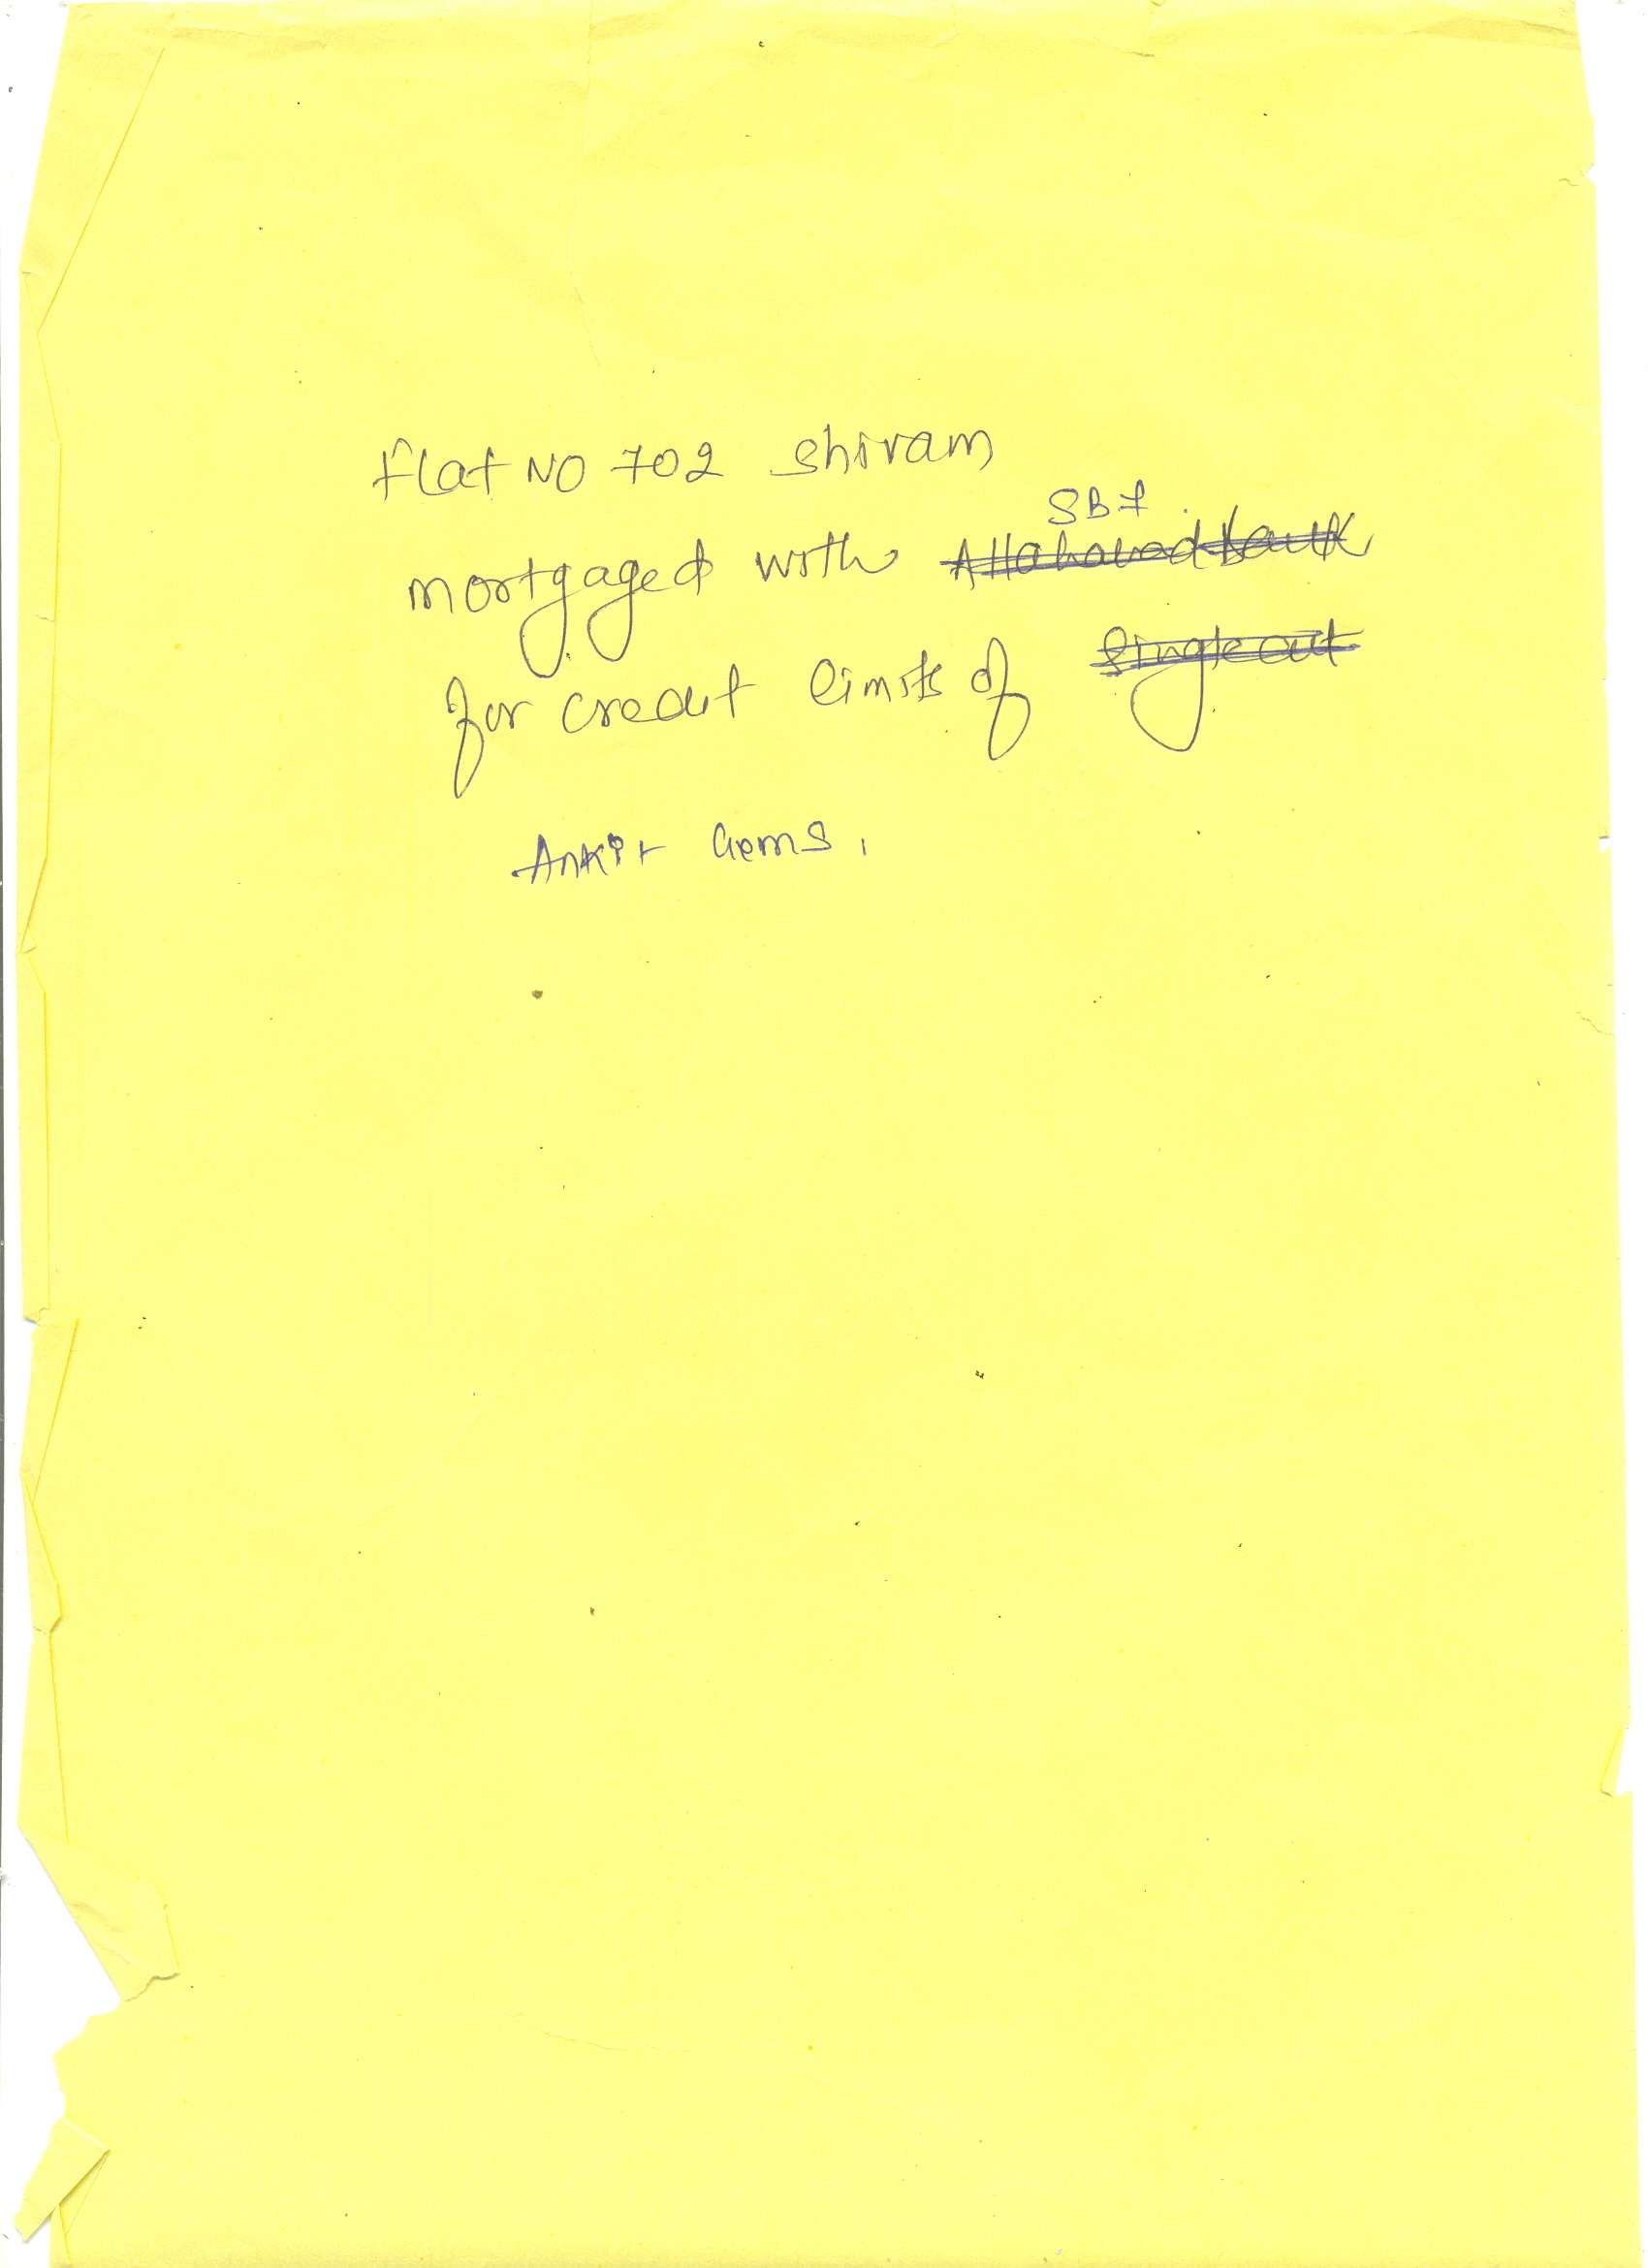 Flat NO 702 Shivam
SBI
mortgaged with Allahabad bank
for credit limits of Single out
Ankit Gems.